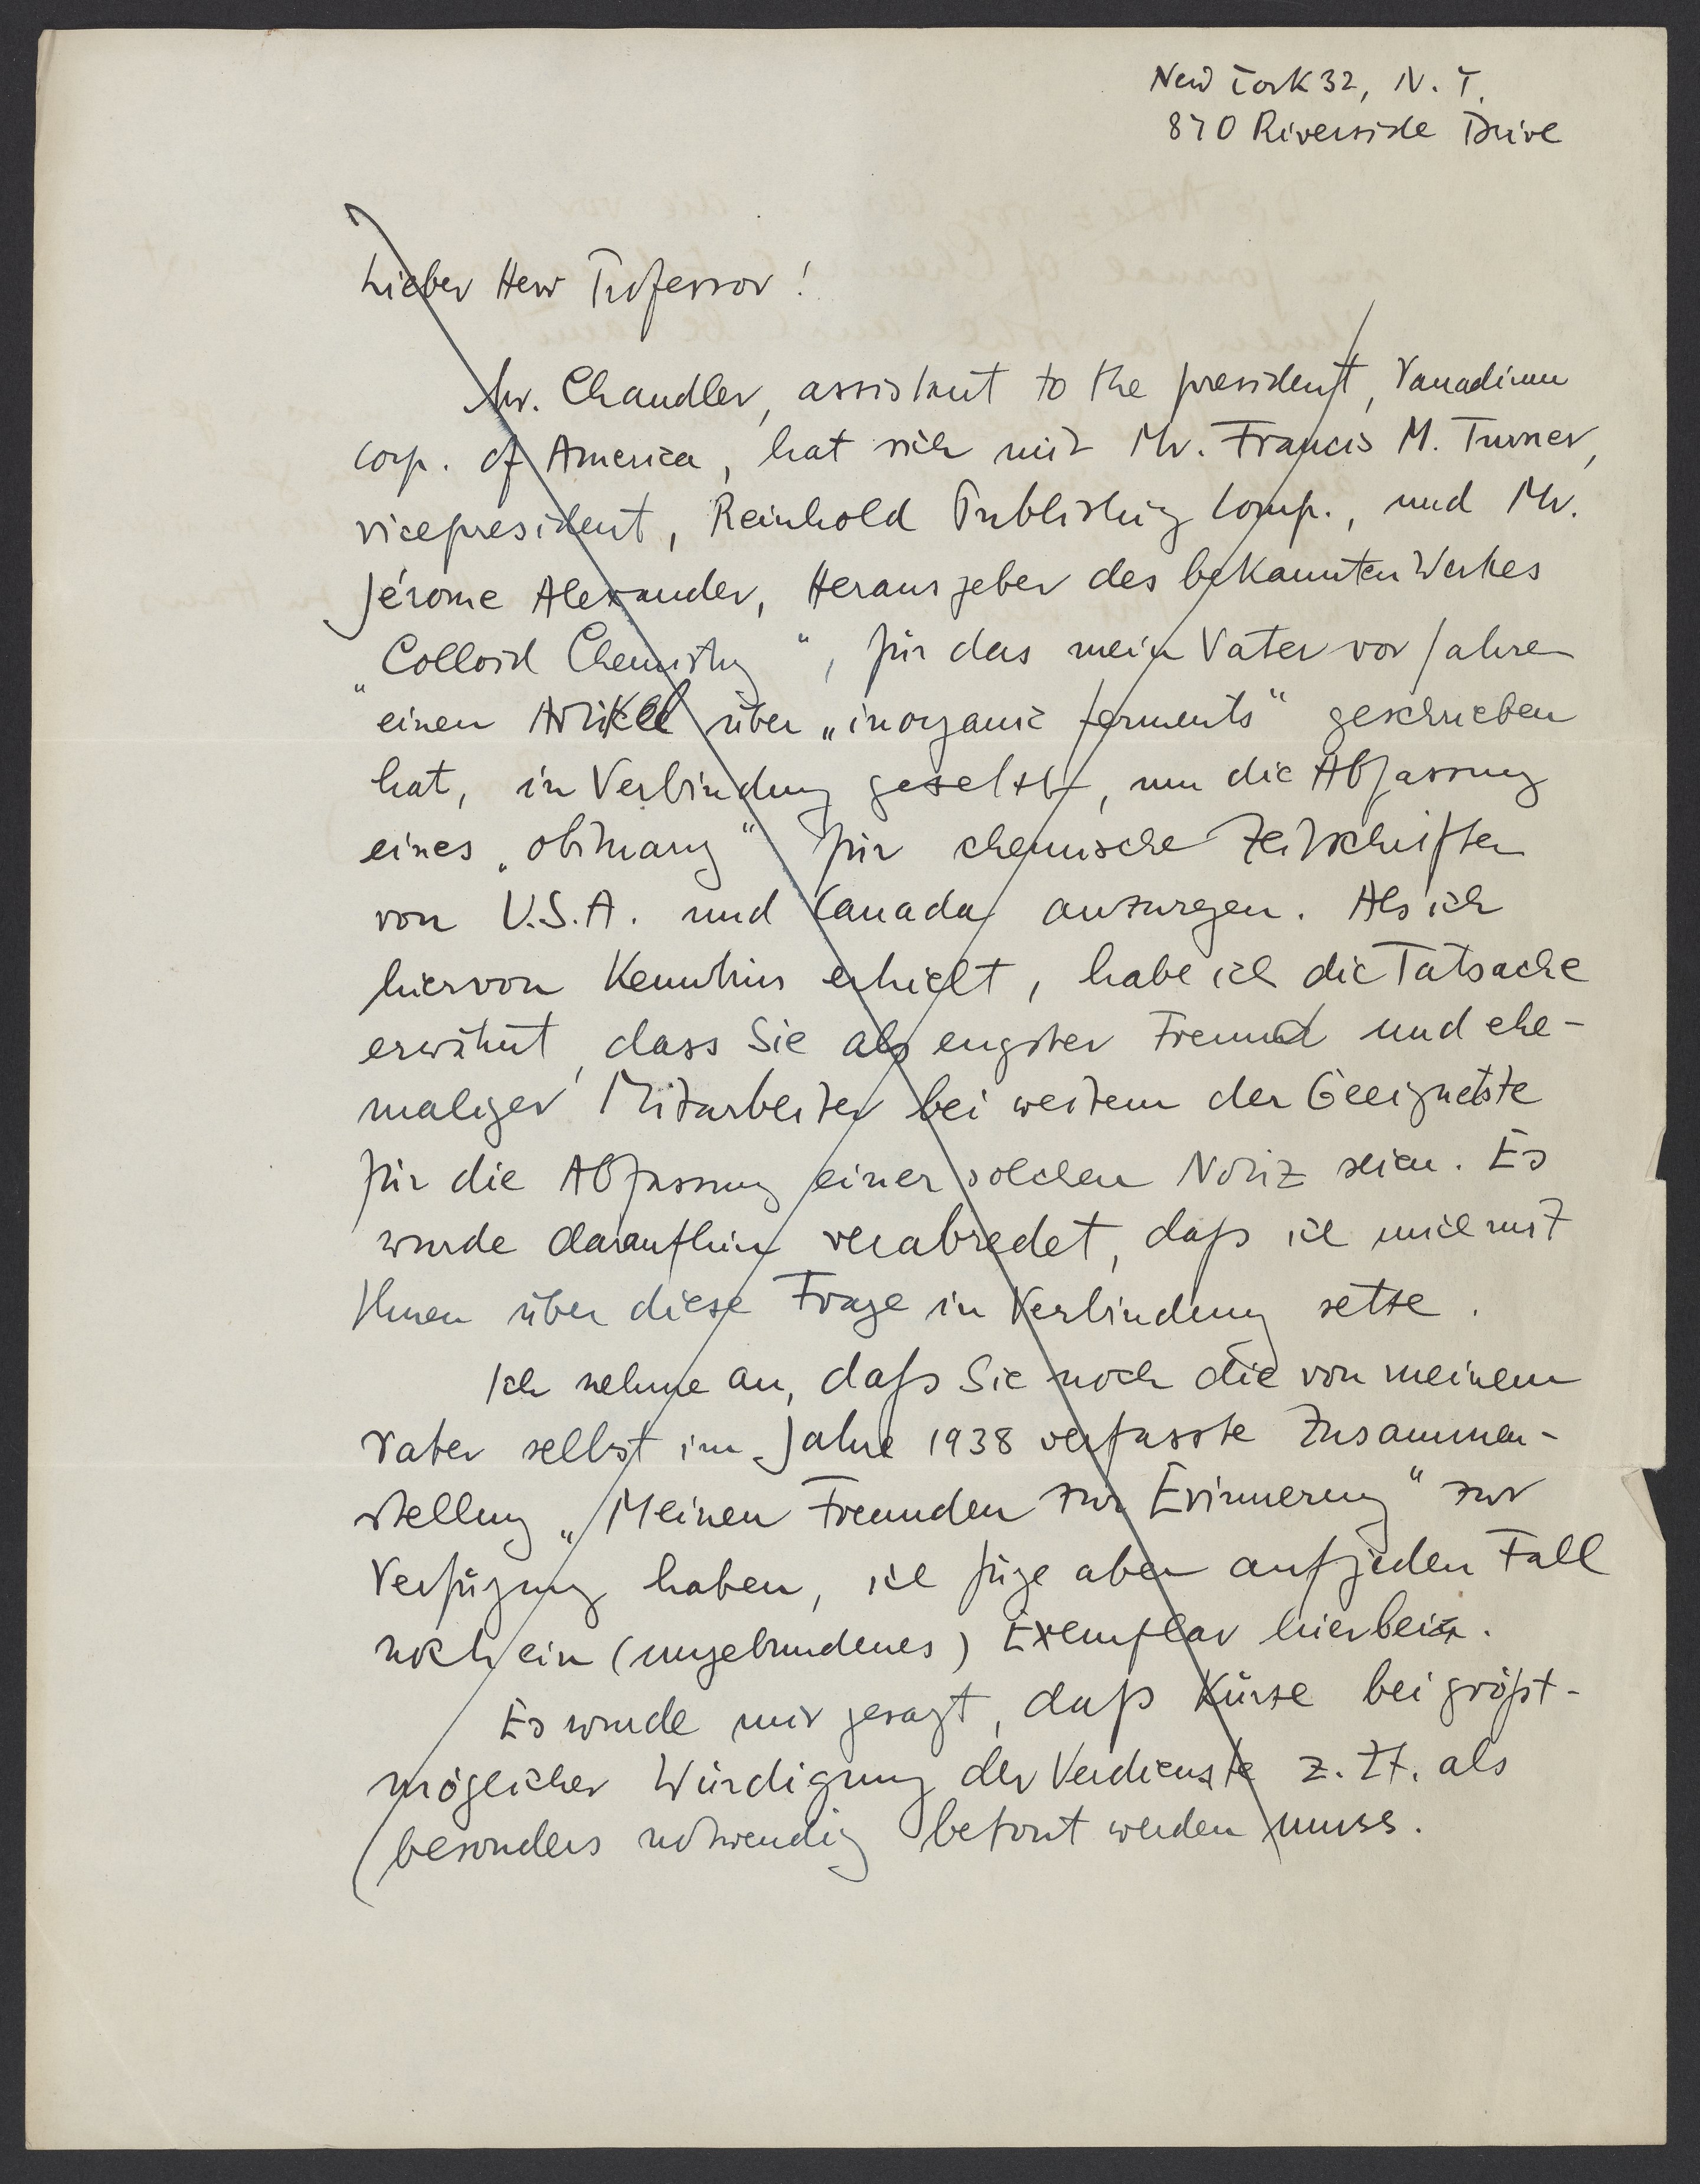 New York 32, N. Y.
870 Riverside Drive
Lieber Herr Professor!
Mr. Chandler, assistant to the president, Vanadium
Corp. of America, hat sich mit Mr. Francis M. Turner,
vicepresident, Reinhold Publishing Comp., und Mr.
Jérome Alexander, Herausgeber des bekannten Werkes
„Colloid Chemistry“, für das mein Vater vor Jahren
einen Artikel über „inorganic ferments“ geschrieben
hat, in Verbindung gesetzt, um die Abfassung
eines „obituary“ für chemische Zeitschriften
von U.S.A. und Canada anzuregen. Als ich
hiervon Kenntnis erhielt, habe ich die Tatsache
erwähnt, dass Sie als engster Freund und ehe-
maliger Mitarbeiter bei weitem der Geeignetste
für die Abfassung einer solchen Notiz seien. Es
wurde daraufhin verabredet, daß ich mich mit
Ihnen über diese Frage in Verbindung setze.
Ich nehme an, daß Sie noch die von meinem
Vater selbst im Jahre 1938 verfasste Zusammen-
stellung „Meinen Freunden zur Erinnerung“ zur
Verfügung haben, ich füge aber auf jeden Fall
noch ein (ungebundenes) Exemplar hierbei.
Es wurde mir gesagt, daß Kürze bei größt-
möglicher Würdigung der Verdienste z. Zt. als
besonders notwendig betont werden muss.